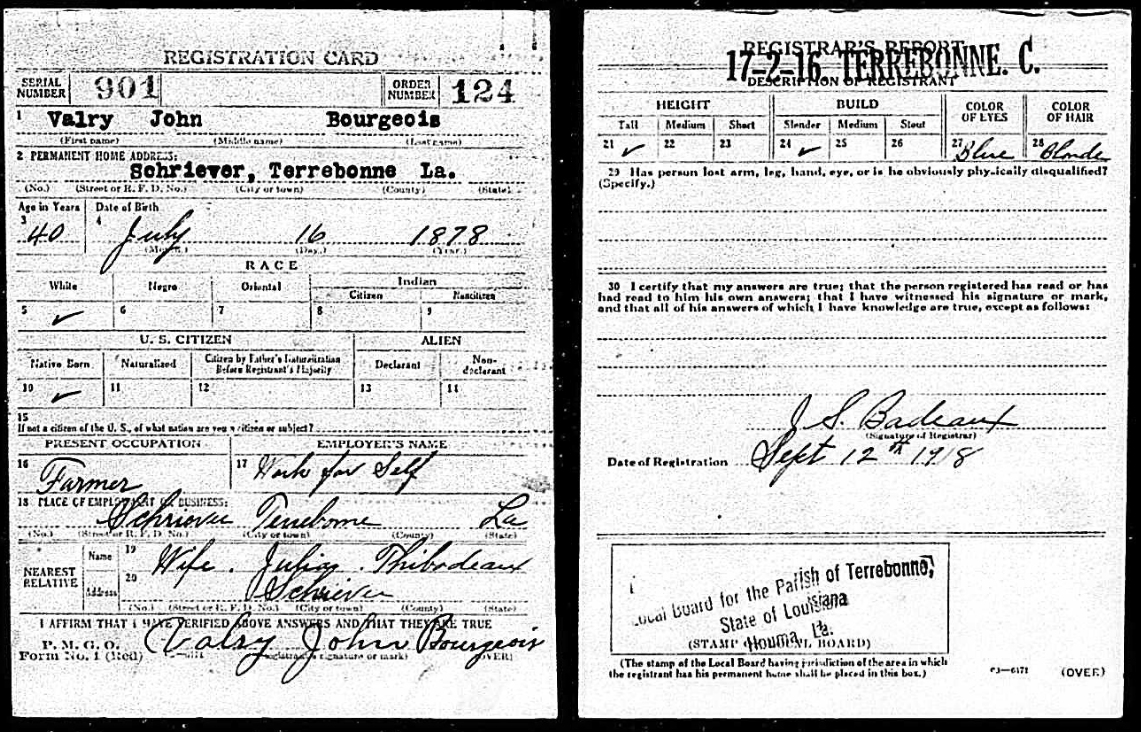 REGISTRATION CARD
SERIAL NUMBER 901 ORDER NUMBER 124
1 Valry John Bourgeois
(First name) (Middle name) (Last name)
2 PERMANENT HOME ADDRESS:
Schriever, Terrebonne La.
(No.) (Street or R. F. D. No.) (City or town) (County) (State)
Age in Years Date of Birth
3 40 4 July 16 1878
(Month.) (Day.) (Year.)
RACE
White Negro Oriental Indian
Citizen Noncitizen
5 ✓ 6 7 8 9
U. S. CITIZEN ALIEN
Native Born Naturalized Citizen by Father's Naturalization Before Registrant's Majority Declarant Non-declarant
10 ✓ 11 12 13 14
15
If not a citizen of the U. S., of what nation are you a citizen or subject?
PRESENT OCCUPATION EMPLOYER'S NAME
16 Farmer 17 Work for Self
18 PLACE OF EMPLOYMENT OR BUSINESS:
Schriever Terrebonne La
(No.) (Street or R. F. D. No.) (City or town) (County) (State)
NEAREST RELATIVE
Name 19 Wife. Julia Thibodeaux
Address 20 Schriever
(No.) (Street or R. F. D. No.) (City or town) (County) (State)
I AFFIRM THAT I HAVE VERIFIED ABOVE ANSWERS AND THAT THEY ARE TRUE
P. M. G. O.
Form No. 1 (Red) Valry John Bourgeois
(Registrant's signature or mark) (OVER)
REGISTRAR'S REPORT
17-2-16 TERREBONNE. C.
DESCRIPTION OF REGISTRANT
HEIGHT BUILD COLOR OF EYES COLOR OF HAIR
Tall Medium Short Slender Medium Stout
21 ✓ 22 23 24 ✓ 25 26 27 Blue 28 Blonde
29 Has person lost arm, leg, hand, eye, or is he obviously physically disqualified?
(Specify.)
30 I certify that my answers are true; that the person registered has read or has
had read to him his own answers; that I have witnessed his signature or mark,
and that all of his answers of which I have knowledge are true, except as follows:
J. S. Badeaux
(Signature of Registrar)
Date of Registration Sept 12th 1918
Local Board for the Parish of Terrebonne,
State of Louisiana
Houma, La.
(STAMP OF LOCAL BOARD)
(The stamp of the Local Board having jurisdiction of the area in which
the registrant has his permanent home shall be placed in this box.)
03—6171 (OVER)